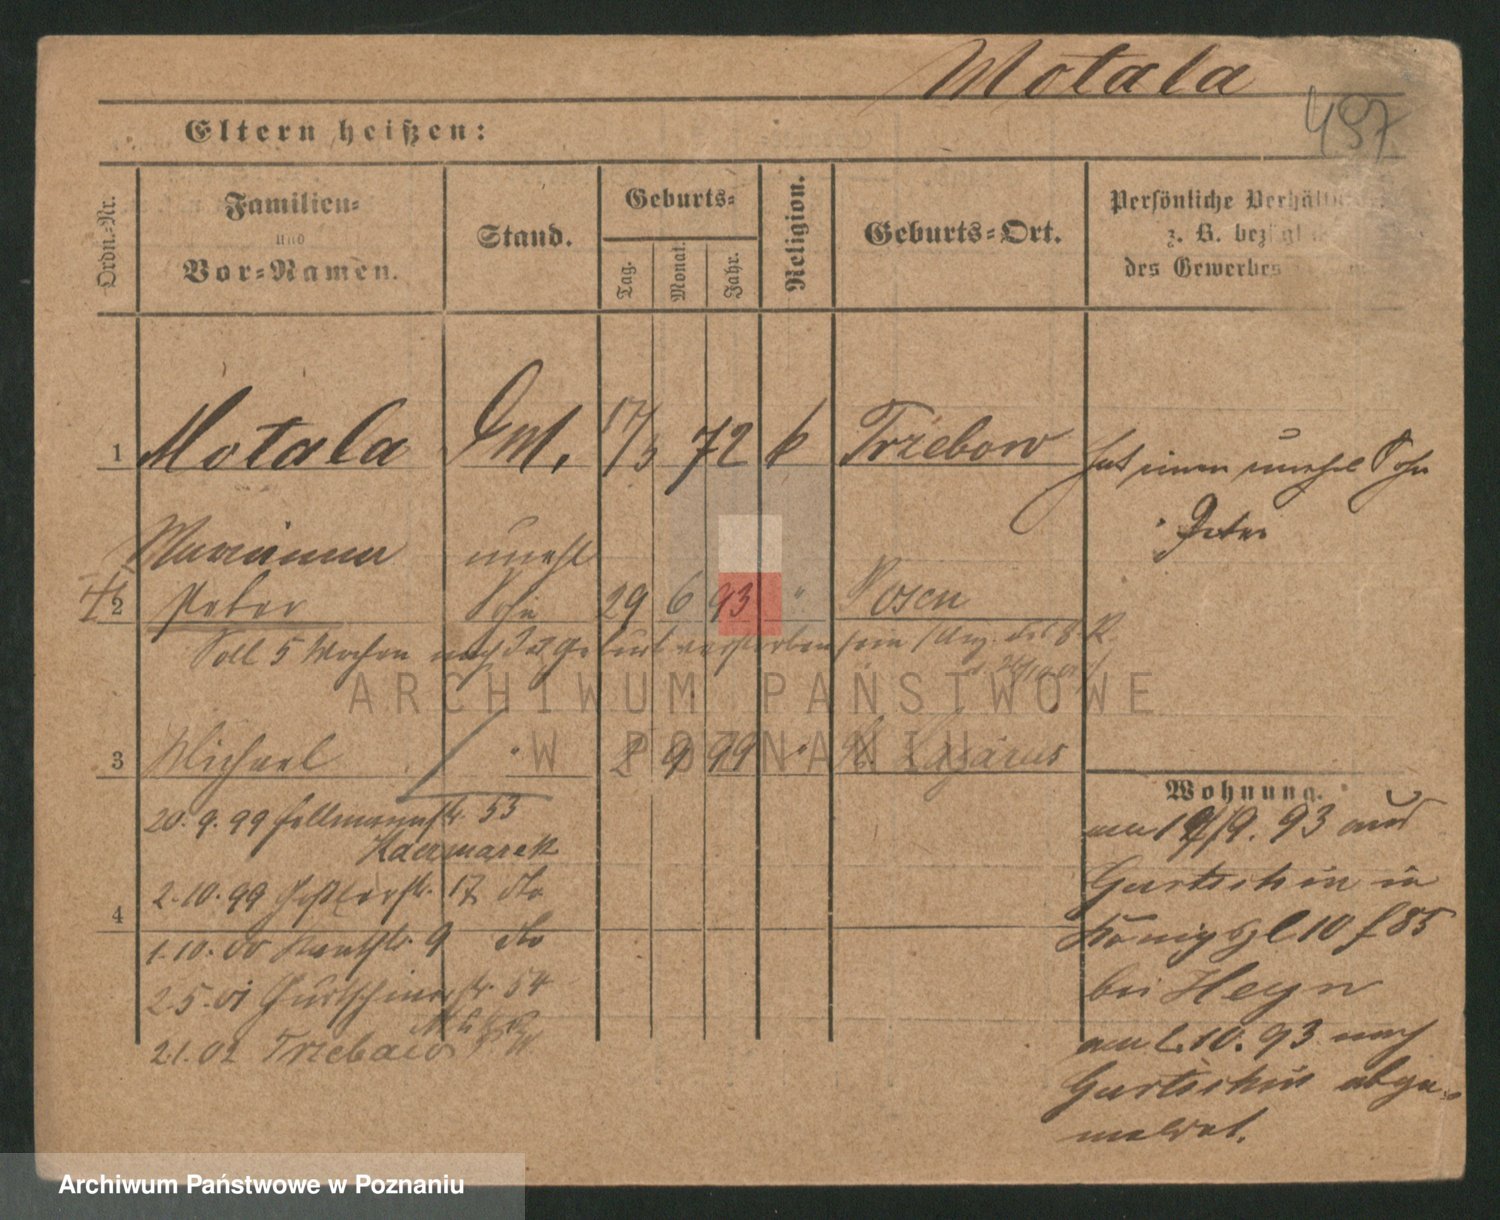 Motala
497
Eltern heißen:
Ordn.-Nr.
Familien-
und
Vor-Namen.
Stand.
Geburts-
Tag.
Monat.
Jahr.
Religion.
Geburts-Ort.
Persönliche Verhält
z. B. bezügl
des Gewerbes
1 Motala 17/3 72 k Trzebow hat einen unehel Sohn
Peter
Marianna unehl
2 Peter Sohn 29 6 93 " Posen
Soll 5 Wochen nach der Geburt verstorben sein
3 Michael " 2 9 99 " St. Lazarus
Wohnung.
20.9.99 53
Kaczmarek
2.10.99 17 dto
4
1.10.00 9 dto
2.5.01 Gurtschinerstr. 54
2.1.02 Trzebaw
am 19/9. 93 aus
Gurtschin in
Königspl 10 f 85
bei Heyn
am 2.10.93 nach
Gurtschin abge-
meldet.
ARCHIWUM PAŃSTWOWE
W POZNANIU
Archiwum Państwowe w Poznaniu